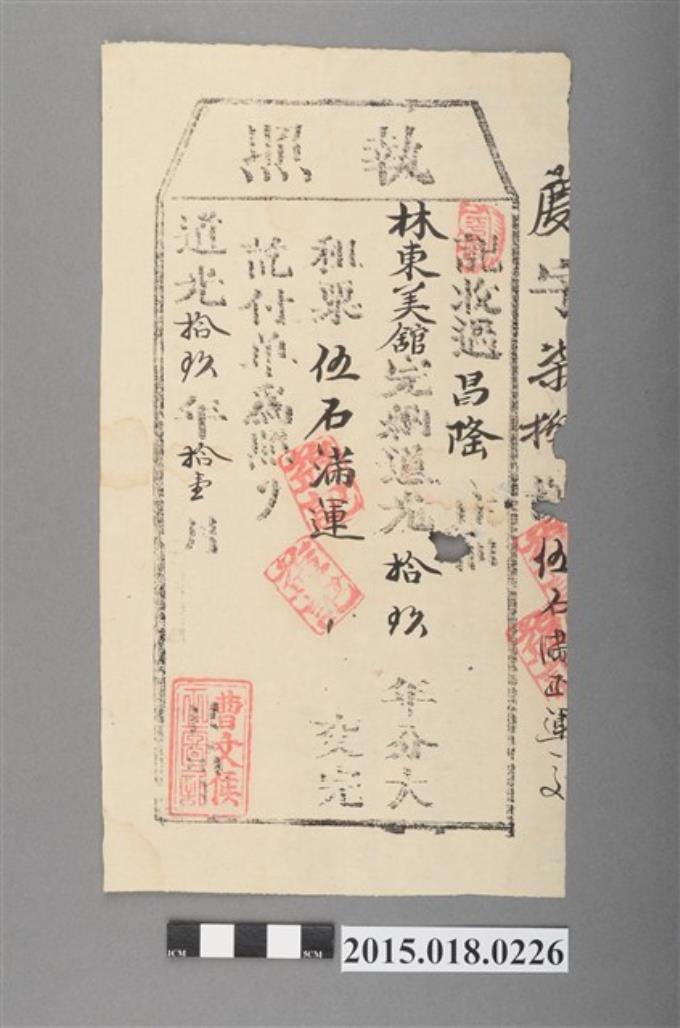 執照
慶字柒拾 伍石滿
記收過昌隆庄佃
林東美舘完納道光拾玖年分大
租粟伍石滿運 交完
訖付单為照
道光拾玖年拾壹月
曹文侯
1CM 5CM
2015.018.0226